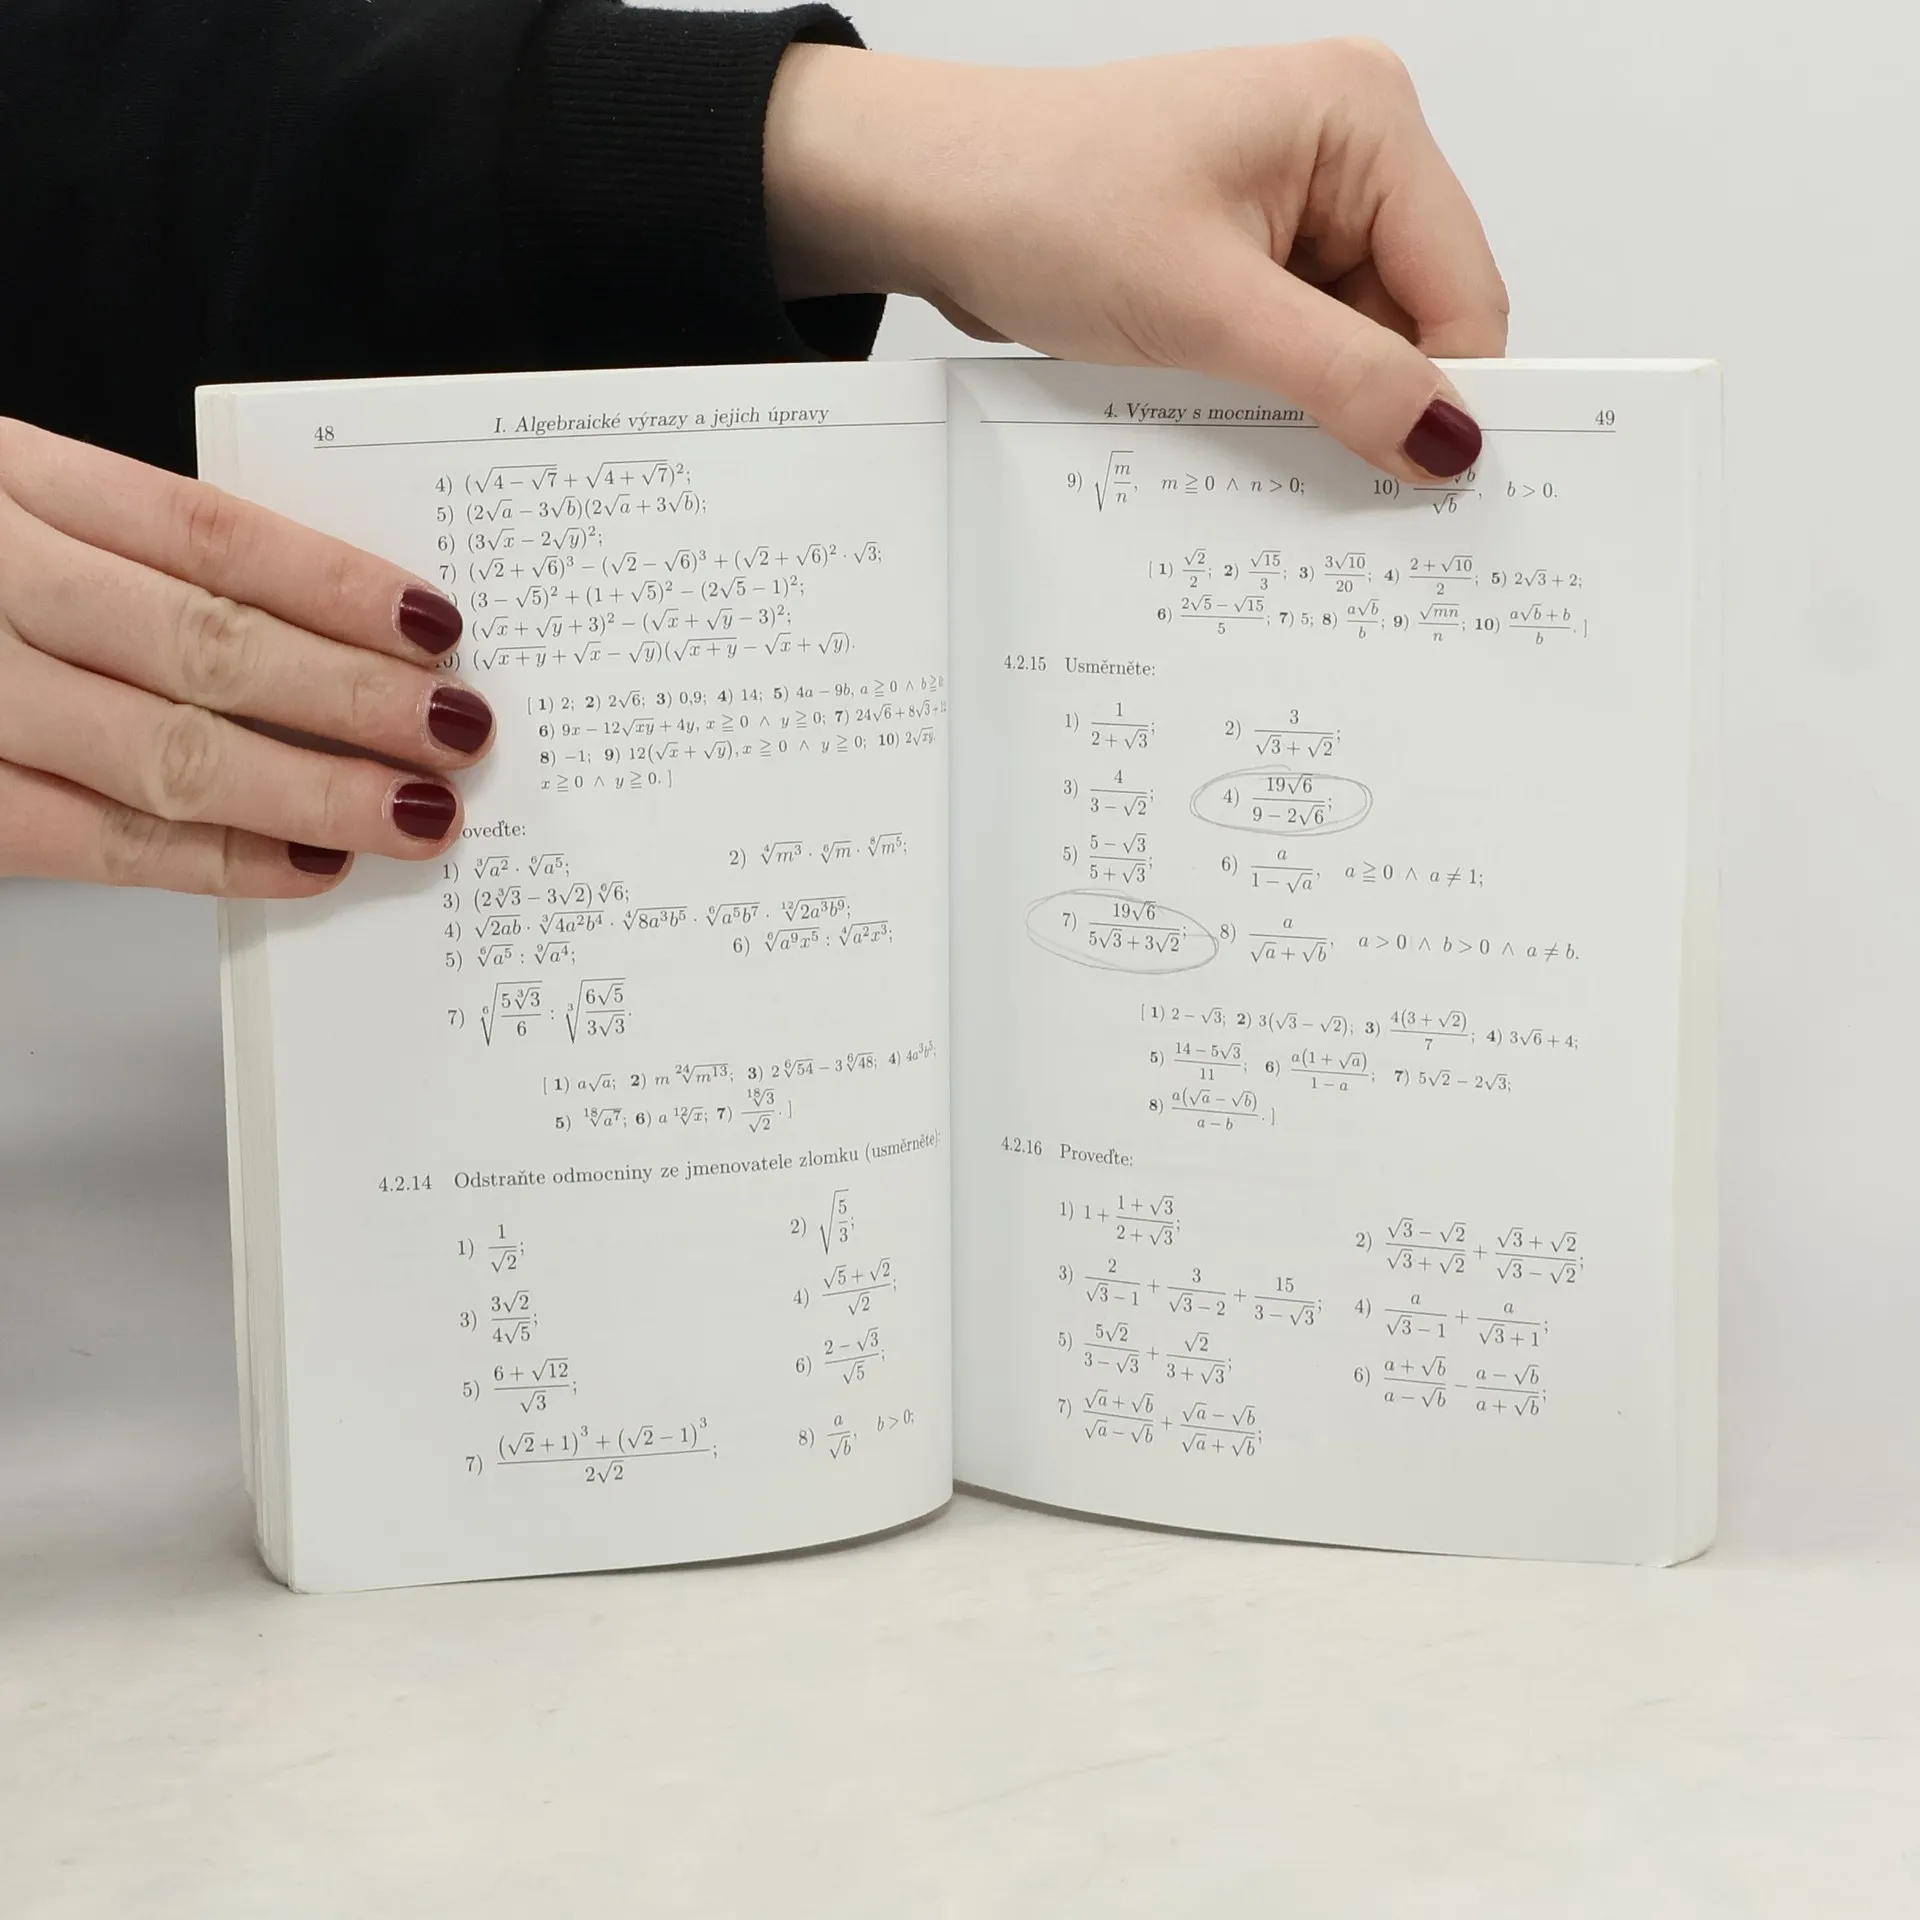 48 I. Algebraické výrazy a jejich úpravy
4) (√(4 − √7) + √(4 + √7))²;
5) (2√a − 3√b)(2√a + 3√b);
6) (3√x − 2√y)²;
7) (√2 + √6)³ − (√2 − √6)³ + (√2 + √6)² · √3;
) (3 − √5)² + (1 + √5)² − (2√5 − 1)²;
(√x + √y + 3)² − (√x + √y − 3)²;
0) (√(x + y) + √x − √y)(√(x + y) − √x + √y).
[ 1) 2; 2) 2√6; 3) 0,9; 4) 14; 5) 4a − 9b, a ≧ 0 ∧ b ≧ 0
6) 9x − 12√(xy) + 4y, x ≧ 0 ∧ y ≧ 0; 7) 24√6 + 8√3 + 12
8) −1; 9) 12(√x + √y), x ≧ 0 ∧ y ≧ 0; 10) 2√(xy).
x ≧ 0 ∧ y ≧ 0. ]
oveďte:
1) ∛(a²) · ⁶√(a⁵); 2) ⁴√(m³) · ⁶√m · ⁸√(m⁵);
3) (2∛3 − 3√2) ⁶√6;
4) √(2ab) · ∛(4a²b⁴) · ⁴√(8a³b⁵) · ⁶√(a⁵b⁷) · ¹²√(2a³b⁹);
5) ⁶√(a⁵) : ⁹√(a⁴); 6) ⁶√(a⁹x⁵) : ⁴√(a²x³);
7) ⁶√(5∛3/6) : ∛(6√5/(3√3)).
[ 1) a√a; 2) m ²⁴√(m¹³); 3) 2 ⁶√54 − 3 ⁶√48; 4) 4a³b⁵;
5) ¹⁸√(a⁷); 6) a ¹²√x; 7) ¹⁸√3/√2. ]
4.2.14 Odstraňte odmocniny ze jmenovatele zlomku (usměrněte):
1) 1/√2; 2) √(5/3);
3) 3√2/(4√5); 4) (√5 + √2)/√2;
5) (6 + √12)/√3; 6) (2 − √3)/√5;
7) ((√2 + 1)³ + (√2 − 1)³)/(2√2); 8) a/√b, b > 0;
4. Výrazy s mocninami 49
9) √(m/n), m ≧ 0 ∧ n > 0; 10) √b/√b, b > 0.
[ 1) √2/2; 2) √15/3; 3) 3√10/20; 4) (2 + √10)/2; 5) 2√3 + 2;
6) (2√5 − √15)/5; 7) 5; 8) a√b/b; 9) √(mn)/n; 10) (a√b + b)/b. ]
4.2.15 Usměrněte:
1) 1/(2 + √3); 2) 3/(√3 + √2);
3) 4/(3 − √2); 4) 19√6/(9 − 2√6);
5) (5 − √3)/(5 + √3); 6) a/(1 − √a), a ≧ 0 ∧ a ≠ 1;
7) 19√6/(5√3 + 3√2); 8) a/(√a + √b), a > 0 ∧ b > 0 ∧ a ≠ b.
[ 1) 2 − √3; 2) 3(√3 − √2); 3) 4(3 + √2)/7; 4) 3√6 + 4;
5) (14 − 5√3)/11; 6) a(1 + √a)/(1 − a); 7) 5√2 − 2√3;
8) a(√a − √b)/(a − b). ]
4.2.16 Proveďte:
1) 1 + (1 + √3)/(2 + √3); 2) (√3 − √2)/(√3 + √2) + (√3 + √2)/(√3 − √2);
3) 2/(√3 − 1) + 3/(√3 − 2) + 15/(3 − √3); 4) a/(√3 − 1) + a/(√3 + 1);
5) 5√2/(3 − √3) + √2/(3 + √3); 6) (a + √b)/(a − √b) − (a − √b)/(a + √b);
7) (√a + √b)/(√a − √b) + (√a − √b)/(√a + √b);